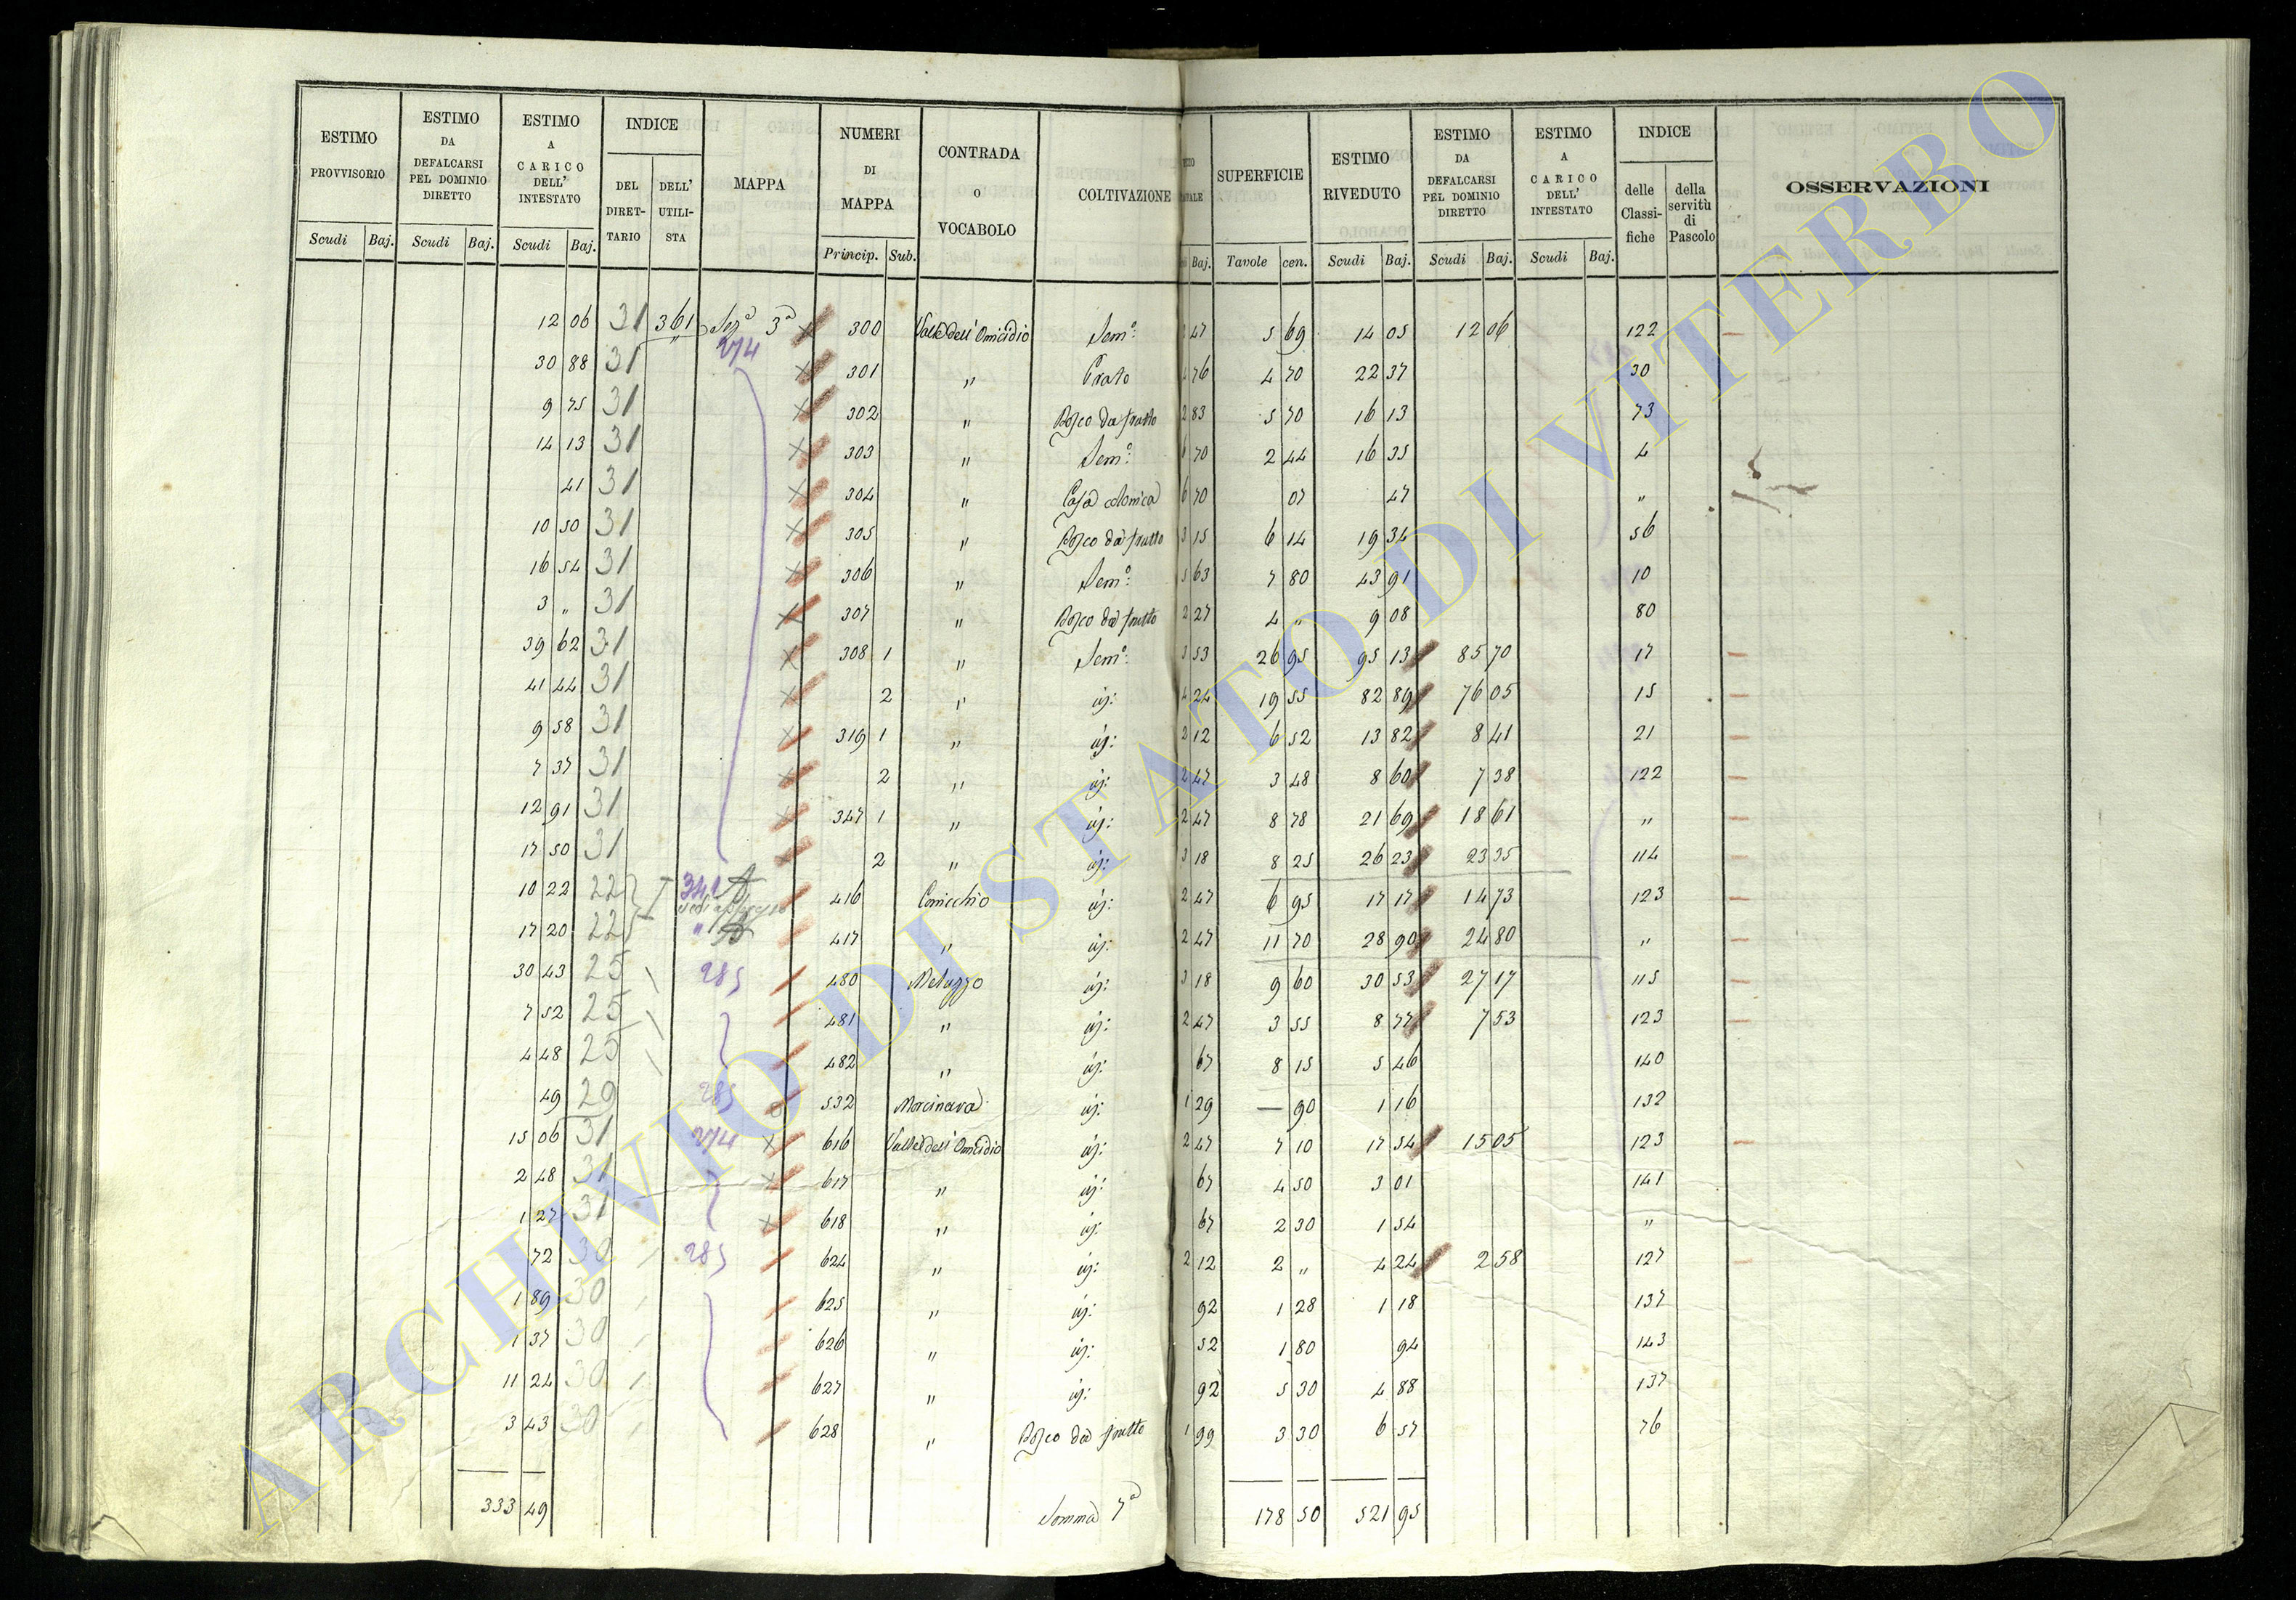 ESTIMO PROVVISORIO | ESTIMO DA DEFALCARSI PEL DOMINIO DIRETTO | ESTIMO A CARICO DELL' INTESTATO | INDICE DEL DIRET- TARIO | DELL' UTILI- STA | MAPPA | NUMERI DI MAPPA | CONTRADA O VOCABOLO | COLTIVAZIONE | SUPERFICIE | ESTIMO RIVEDUTO | ESTIMO DA DEFALCARSI PEL DOMINIO DIRETTO | ESTIMO A CARICO DELL' INTESTATO | INDICE delle Classi- fiche | della servitù di Pascolo | OSSERVAZIONI
Scudi Baj. Scudi Baj. Scudi Baj. Princip. Sub. Baj. Tavole cen. Scudi Baj. Scudi Baj. Scudi Baj.
12 06 31 361 Sez.a 3a 300 Valle dell' Omicidio Sem.o: 2 47 5 69 14 05 12 06 122
274
30 88 31 301 " Prato 4 76 4 70 22 37 30
9 75 31 302 " Bosco da frutto 2 83 5 70 16 13 73
14 13 31 303 " Sem.o: 6 70 2 44 16 35 4
41 31 304 " Casa colonica 6 70 07 47 "
10 50 31 305 " Bosco da frutto 3 15 6 14 19 34 56
16 54 31 306 " Sem.o: 5 63 7 80 43 91 10
3 " 31 307 " Bosco da frutto 2 27 4 " 9 08 80
39 62 31 308 1 " Sem.o: 3 53 26 95 95 13 85 70 17
41 44 31 2 " id: 4 24 19 55 82 89 76 05 15
9 58 31 319 1 " id: 2 12 6 52 13 82 8 41 21
7 37 31 2 " id: 2 47 3 48 8 60 7 38 122
12 91 31 347 1 " id: 2 47 8 78 21 69 18 61 "
17 50 31 2 " id: 3 18 8 25 26 23 23 35 114
10 22 22 341 416 Conicchio id: 2 47 6 95 17 17 14 73 123
17 20 22 " 417 " id: 2 47 11 70 28 90 24 80 "
30 43 25 285 480 Meluzzo id: 3 18 9 60 30 53 27 17 115
7 52 25 481 " id: 2 47 3 55 8 77 7 53 123
4 48 25 482 " id: 67 8 15 5 46 140
49 29 285 532 id: 1 29 — 90 1 16 132
15 06 31 274 616 Valle dell' Omicidio id: 2 47 7 10 17 54 15 05 123
2 48 31 617 " id: 67 4 50 3 01 141
1 27 31 618 " id: 67 2 30 1 54 "
72 30 285 624 " id: 2 12 2 " 4 24 2 58 127
1 89 30 625 " id: 92 1 28 1 18 137
1 37 30 626 " id: 52 1 80 94 143
11 24 30 627 " id: 92 5 30 4 88 137
3 43 30 628 " Bosco da frutto 1 99 3 30 6 57 76
333 49 Somma 7a 178 50 521 95
ARCHIVIO DI STATO DI VITERBO